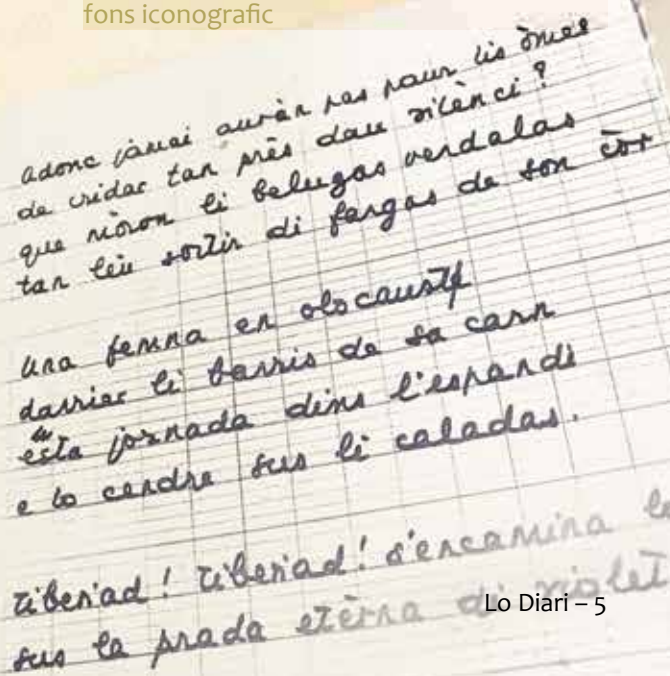 fons iconografic
adonc jamai auràn pas paur lis òmes
de cridar tan près dau silènci?
que mòron li belugas verdalas
tan lèu sortir di fargas de son còr
una femna en olocauste
darrier li barris de sa carn
esta jornada dins l'espandi
e lo cendre sus li caladas.
Tiberiad! Tiberiad! s'encamina
sus la prada etèrna di
Lo Diari – 5